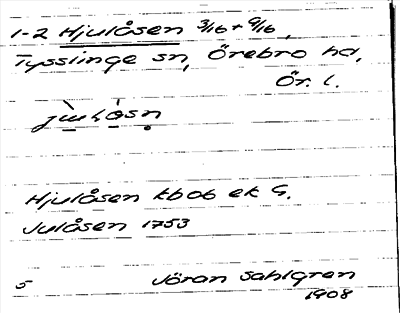 1-2 Hjulåsen 3/16 + 9/16,
Tysslinge sn, Örebro hd,
Ör. l.
Hjulåsen kbob ek G.
Julåsen 1753
5 Jöran Sahlgren
1908